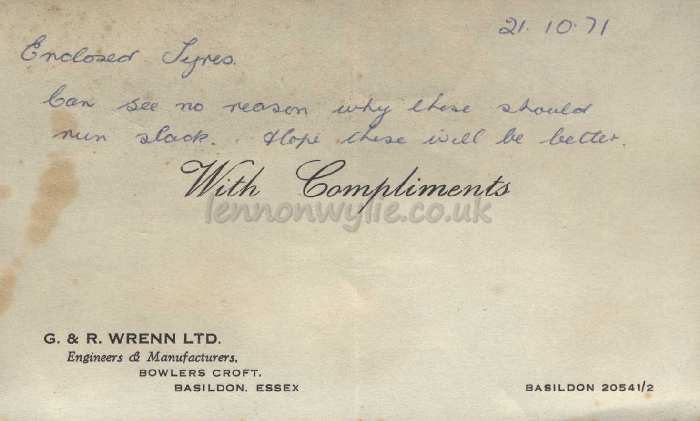 21.10.71
Enclosed Tyres.
Can see no reason why these should
run slack. Hope these will be better.
With Compliments
lennonwylie.co.uk
G. & R. WRENN LTD.
Engineers & Manufacturers,
BOWLERS CROFT,
BASILDON, ESSEX
BASILDON 20541/2